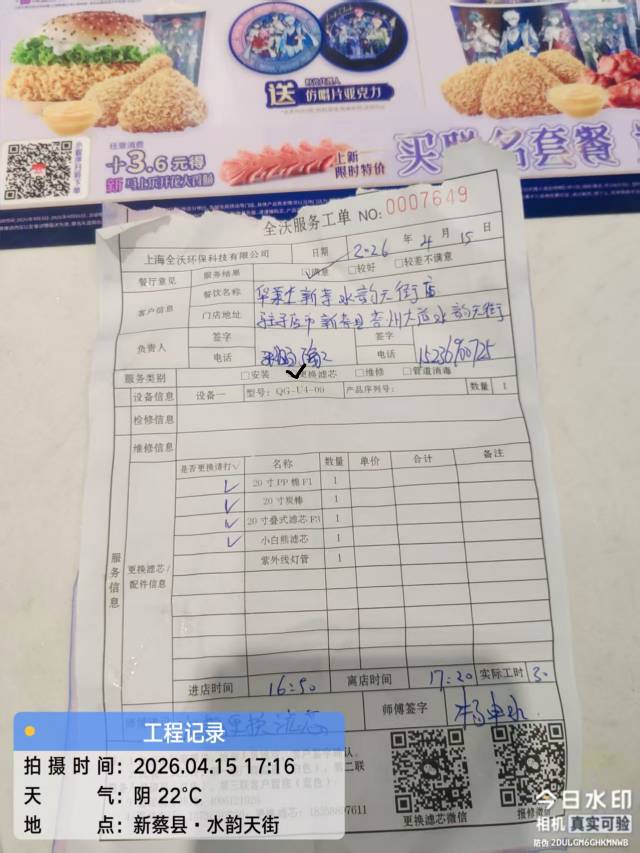 送
仿唱片亚克力
任意消费
+3.6元得
新
上新
限时特价
套餐
全沃服务工单 NO:0007649
上海全沃环保科技有限公司 日期 2026 年 4 月 15 日
餐厅意见 服务结果 ☑满意 □较好 □较差不满意
客户信息 餐饮名称 华莱士新蔡水韵天街店
门店地址 驻马店市新蔡县 大道水韵天街
负责人 签字 签字
电话 电话 15236900725
服务类别 □安装 ✓更换滤芯 □维修 □管道消毒
设备信息 设备一 型号: QG-U4-06 产品序列号: 数量 1
检修信息
维修信息
服务信息
更换滤芯/
配件信息
是否更换请打√ 名称 数量 单价 合计 备注
✓ 20寸PP棉F1 1
✓ 20寸炭棒 1
✓ 20寸叠式滤芯F3 1
✓ 小白熊滤芯 1
紫外线灯管 1
进店时间 16:50 离店时间 17:20 实际工时 30
更换滤芯 师傅签字
更换滤芯微信 报修微信
工程记录
拍摄时间: 2026.04.15 17:16
天 气: 阴 22℃
地 点: 新蔡县·水韵天街
今日水印
相机 真实可验
防伪 2DULGM6GHKMNWB